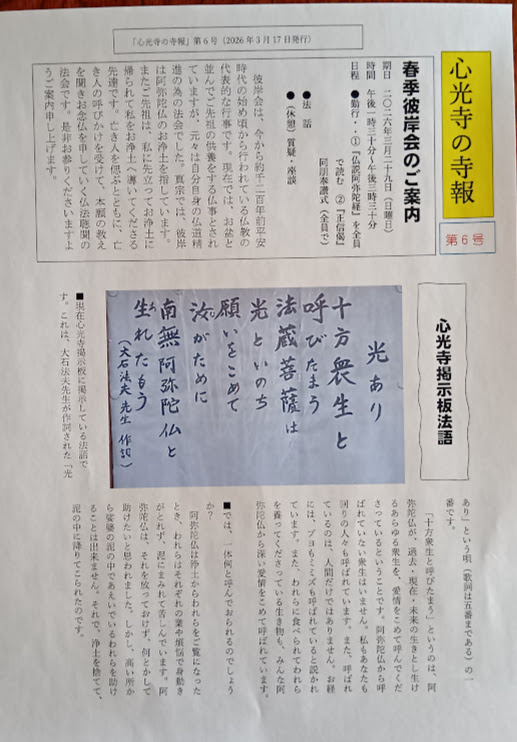 「心光寺の寺報」第6号（2026年3月17日発行）
心光寺の寺報
第6号
春季彼岸会のご案内
期日　二〇二六年三月二十九日（日曜日）
時間　午後一時三十分～午後三時三十分
日程　●勤行・・①『仏説阿弥陀経』を全員
で読む　②『正信偈』
同朋奉讃式（全員で）
●法　話
●（休憩）質疑・座談
彼岸会は、今から約千二百年前平安
時代の始め頃から行われている仏教の
代表的な行事です。現在では、お盆と
並んでご先祖の供養をする仏事とされ
ていますが、元々は自分自身の仏道精
進の為の法会でした。真宗では、彼岸
は阿弥陀仏のお浄土を指しています。
またご先祖は、私に先立ってお浄土に
帰られて私をお浄土へ導いてくださる
先達です。亡き人を偲ぶとともに、亡
き人の呼びかけを受けて、本願の教え
を聞きお念仏を申していく仏法聴聞の
法会です。是非お参りくださいますよ
うご案内申し上げます。
心光寺掲示板法語
光あり
十方衆生と
呼びたまう
法蔵菩薩は
光といのち
願いをこめて
汝がために
南無阿弥陀仏と
生れたもう
（大石法夫先生 作詞）
■現在心光寺掲示板に掲示している法語で
す。これは、大石法夫先生が作詞された「光
あり」という唄（歌詞は五番まである）の一
番です。
「十方衆生と呼びたまう」というのは、阿
弥陀仏が、過去・現在・未来の生きとし生け
るあらゆる衆生を、愛情をこめて呼んでくだ
さっているということです。阿弥陀仏から呼
ばれていない衆生はいません。私もあなたも
回りの人々も呼ばれています。また、呼ばれ
ているのは、人間だけではありません。お経
には、ブヨもミミズも呼ばれていると説かれ
ています。また、われらに食べられてわれら
を養ってくださっている生き物も、みんな阿
弥陀仏から深い愛情をこめて呼ばれています。
■では、一体何と呼んでおられるのでしょう
か？
阿弥陀仏は浄土からわれらをご覧になった
とき、われらはそれぞれの業や煩悩で身動き
がとれず、泥にまみれて苦しんでいます。阿
弥陀仏は、それを放っておけず、何とかして
助けたいと思われました。しかし、高い所か
ら娑婆の泥の中であえいでいるわれらを助け
ることは出来ません。それで、浄土を捨てて、
泥の中に降りてこられたのです。